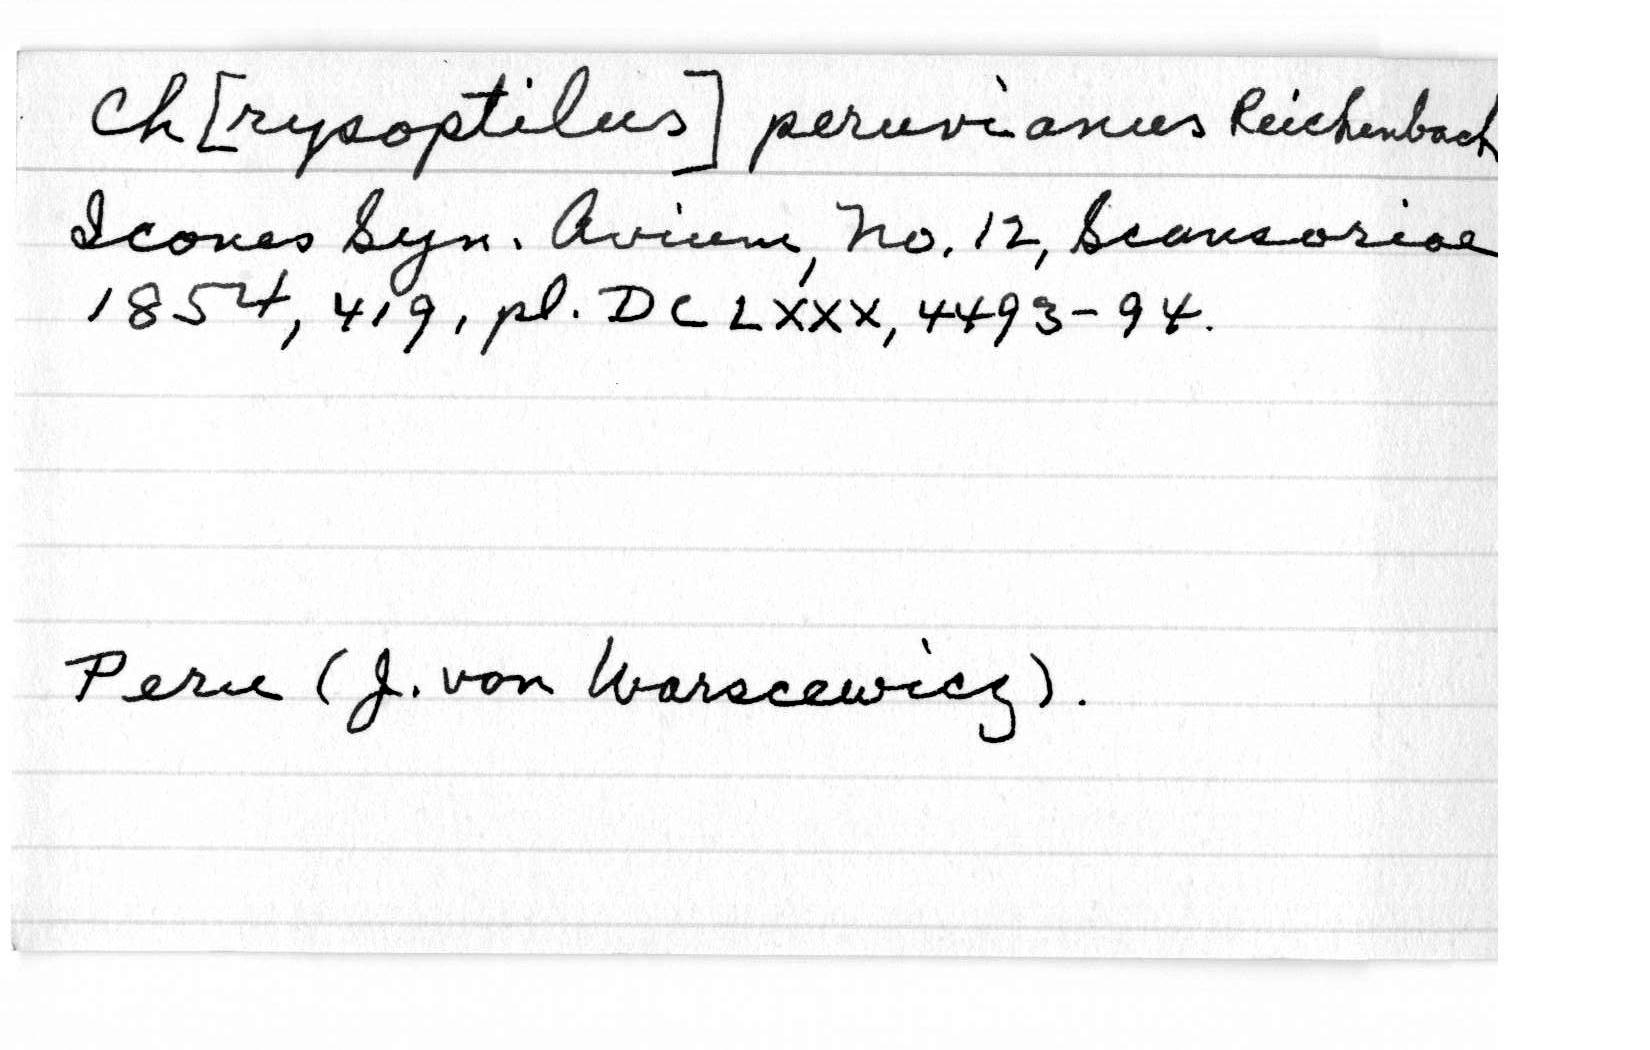 Ch[rysoptilus] peruvianus Reichenbach
Icones Syn. Avium, No. 12, Scansoriae
1854, 419, pl. DCLXXX, 4493-94.
Peru (J. von Warscewicz).